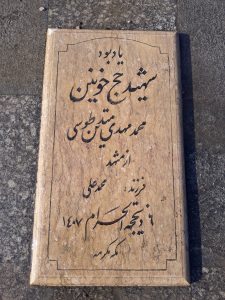 یادبود
شهید حج خونین
محمد مهدی متدین طوسی
از مشهد
فرزند: محمد علی
۶ ذیحجة الحرام ۱۴۰۷
مکه مکرمه